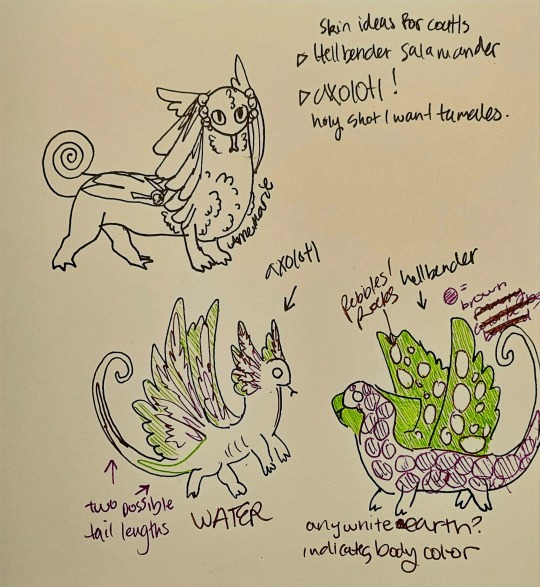 skin ideas for coatls
▷ Hellbender salamander
▷ axolotl!
holy shot I want tamales.
axolotl
Pebbles/
Rocks
hellbender
= brown
two possible
tail lengths
WATER
any white earth?
indicates body color